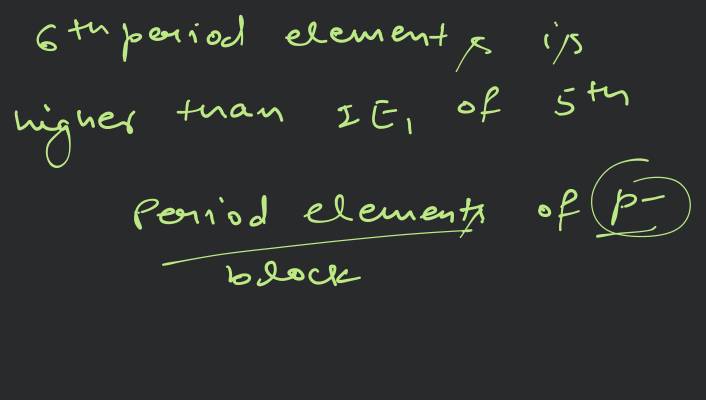 6th period elements is
higher than IE1 of 5th
Period elements of p-
block